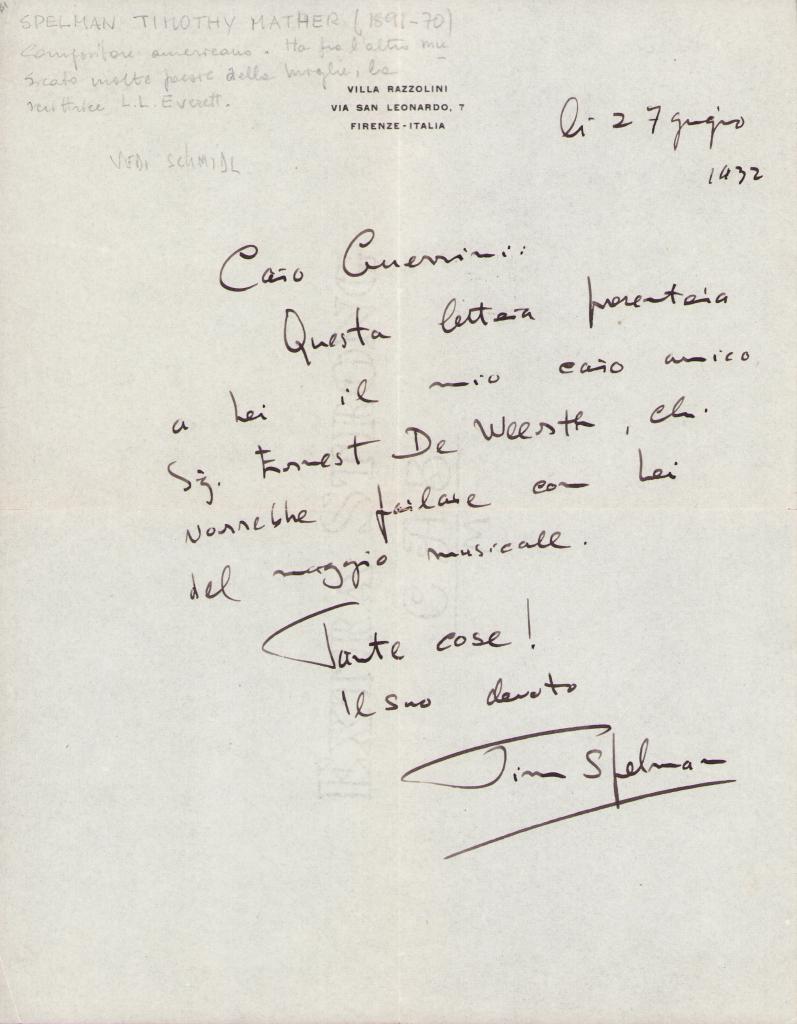 SPELMAN TIMOTHY MATHER (1891-70)
Compositore americano. Ha fra l'altro mu
sicato molte poesie della moglie, la
scrittrice L.L. Everett.
VEDI SCHMIDL
VILLA RAZZOLINI
VIA SAN LEONARDO, 7
FIRENZE-ITALIA
li 27 giugno
1932
Caro Guerrini:
Questa lettera presentera
a Lei il mio caro amico
Sig. Ernest De Weerth, che
vorrebbe parlare con Lei
del maggio musicale.
Tante cose!
Il suo devoto
Tim Spelman